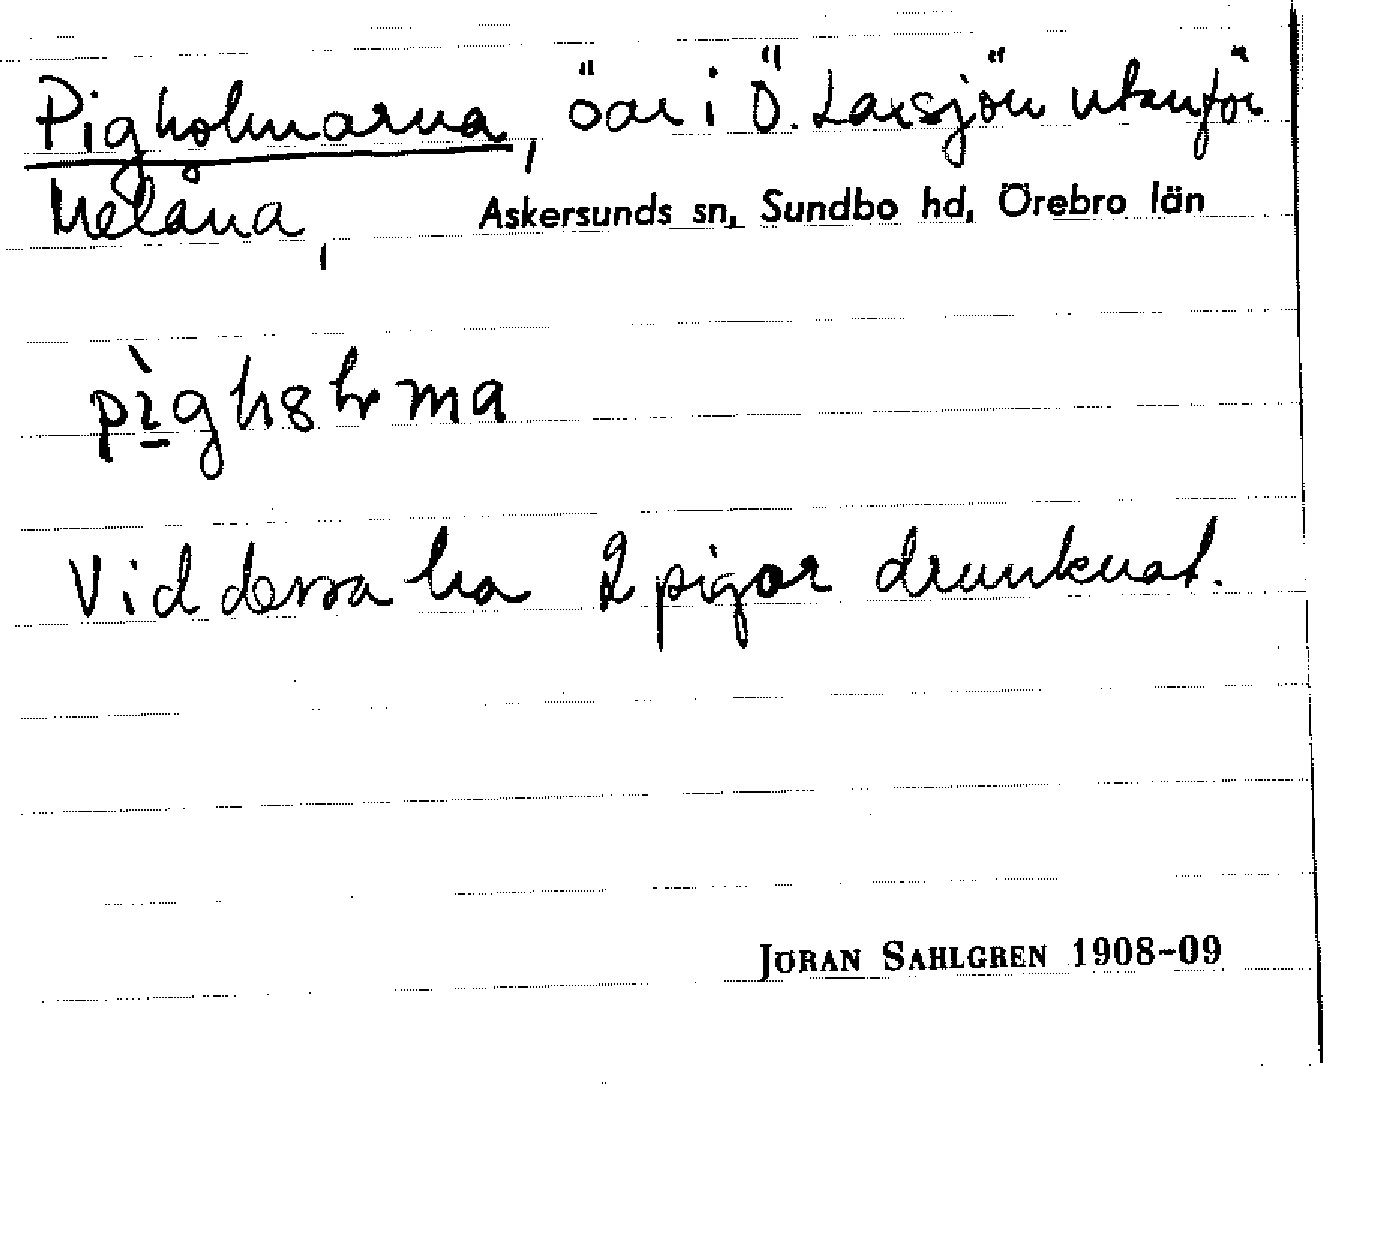 Pigholmarna, öar i Ö. Laxsjön utanför
Melåna, Askersunds sn, Sundbo hd, Örebro län
Vid dessa ha 2 pigor drunknat.
JÖRAN SAHLGREN 1908-09